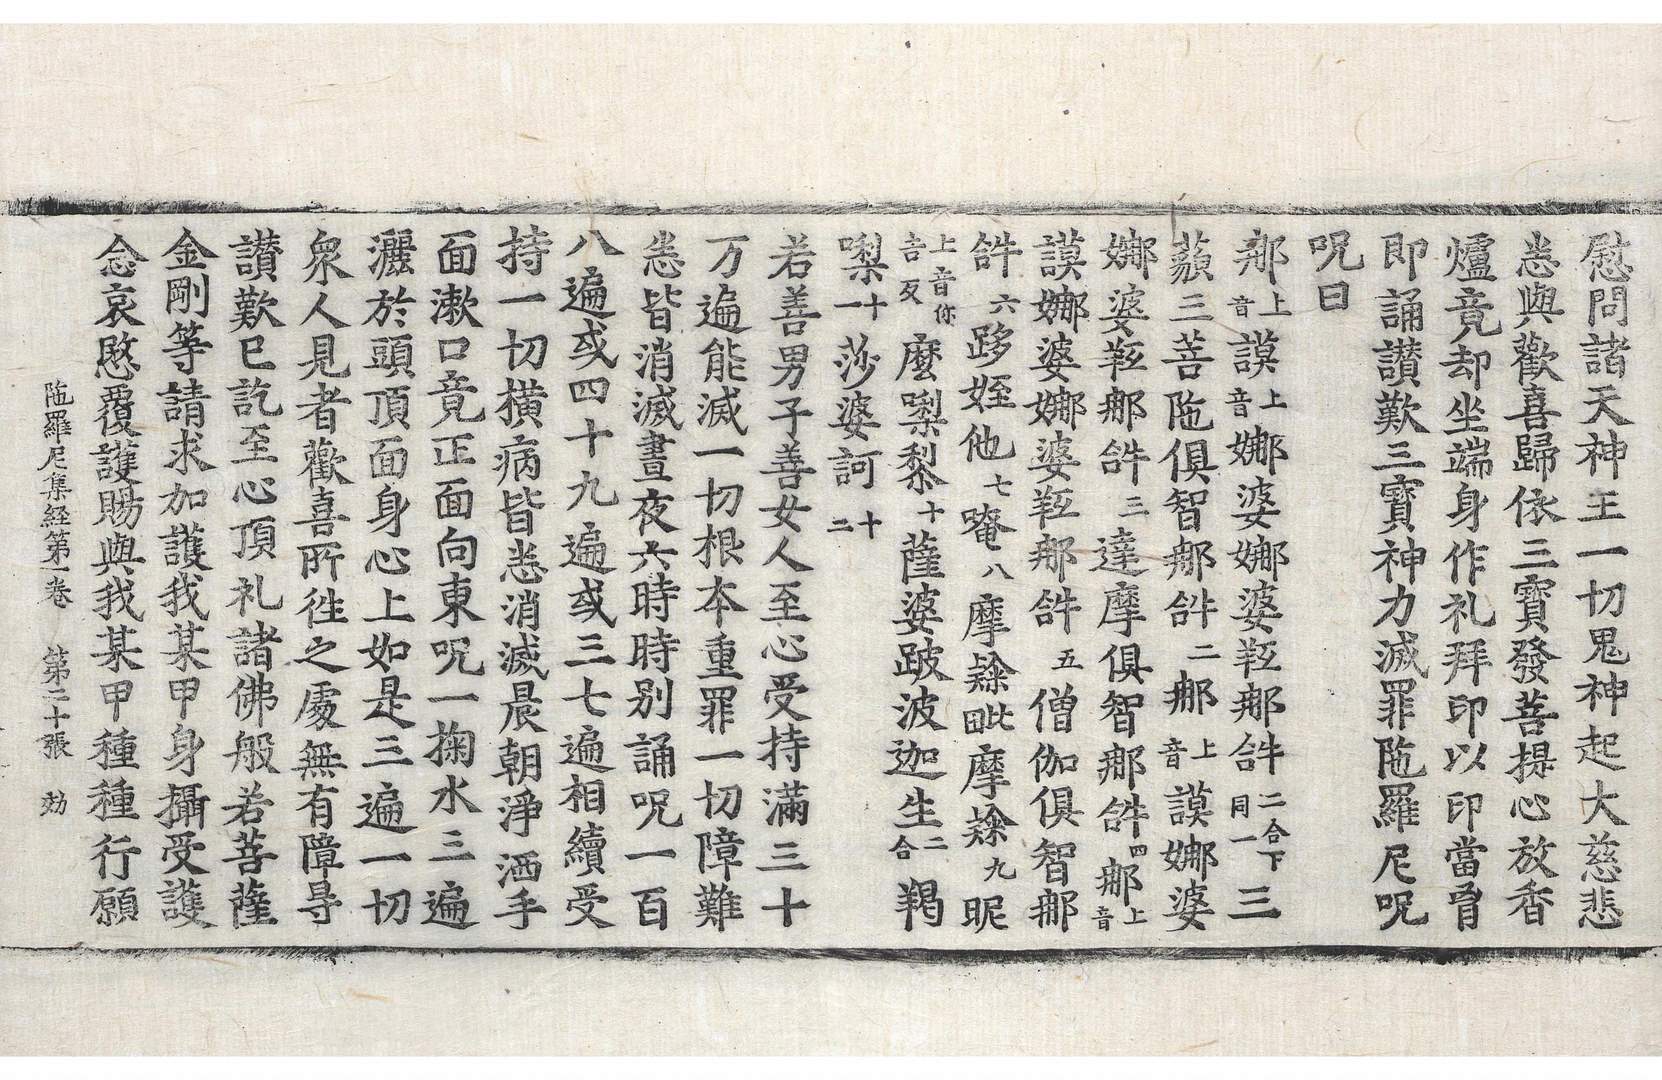 慰問諸天神王一切鬼神起大慈悲
悉與歡喜歸依三寶發菩提心放香
爐竟却坐端身作礼拜印以印當胷
即誦讃歎三寶神力滅罪陁羅尼呪
呪曰
那上音謨上音娜婆娜婆䩭那𤙖二合下同一三
藐三菩陁俱智那𤙖二那上音謨娜婆
娜婆䩭那𤙖三達摩俱智那𤙖四那上音
謨娜婆娜婆䩭那𤙖五僧伽俱智那
𤙖六跢姪他七唵八摩㘑毗摩㘑九昵
上音你吉反麼㗚黎十薩婆跛波迦生二合羯
㗚十一莎婆訶十二
若善男子善女人至心受持滿三十
万遍能滅一切根本重罪一切障難
悉皆消滅晝夜六時時別誦呪一百
八遍或四十九遍或三七遍相續受
持一切橫病皆悉消滅晨朝淨洒手
面漱口竟正面向東呪一掬水三遍
灑於頭頂面身心上如是三遍一切
衆人見者歡喜所往之處無有障㝵
讃歎已訖至心頂礼諸佛般若菩薩
金剛等請求加護我某甲身攝受護
念哀愍覆護賜與我某甲種種行願
陁羅尼集経第一卷　第二十張　効